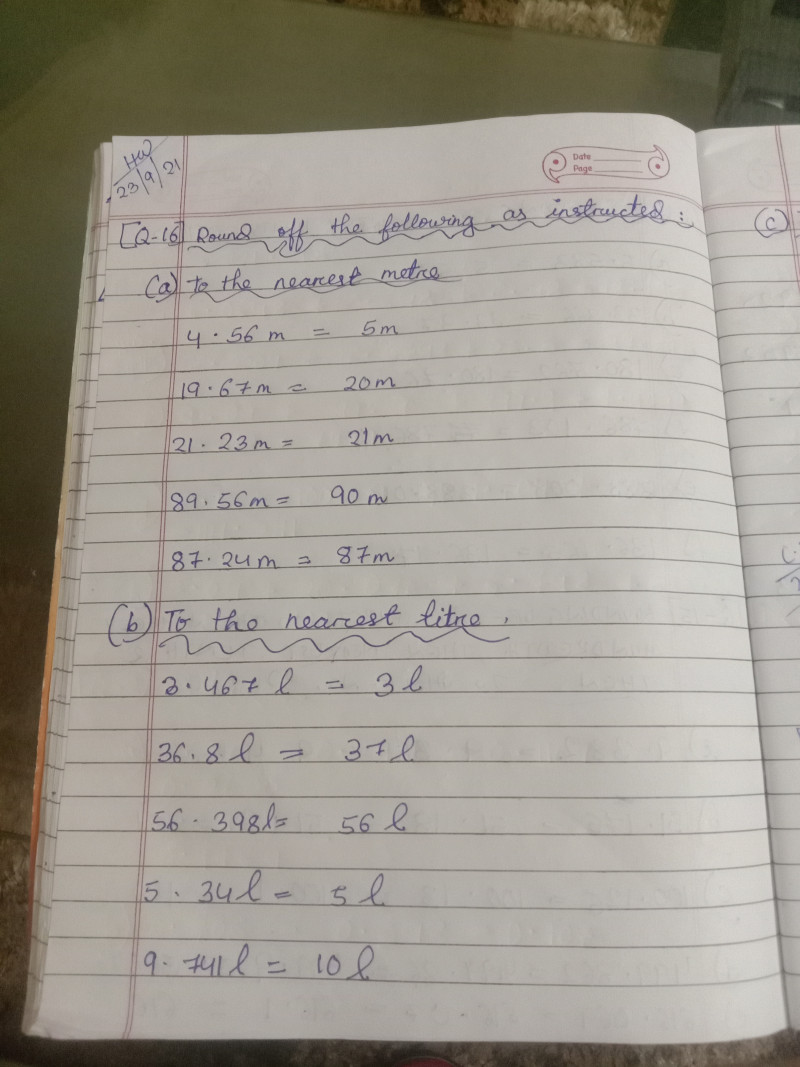 HW
23/9/21
Date
Page
[Q-16] Round off the following as instructed:
(a) To the nearest metre
4.56 m = 5m
19.67m = 20m
21.23m = 21m
89.56m = 90m
87.24m = 87m
(b) To the nearest litre.
3.467 l = 3 l
36.8 l = 37 l
56.398l= 56 l
5.34l = 5 l
9.741l = 10 l
(c)